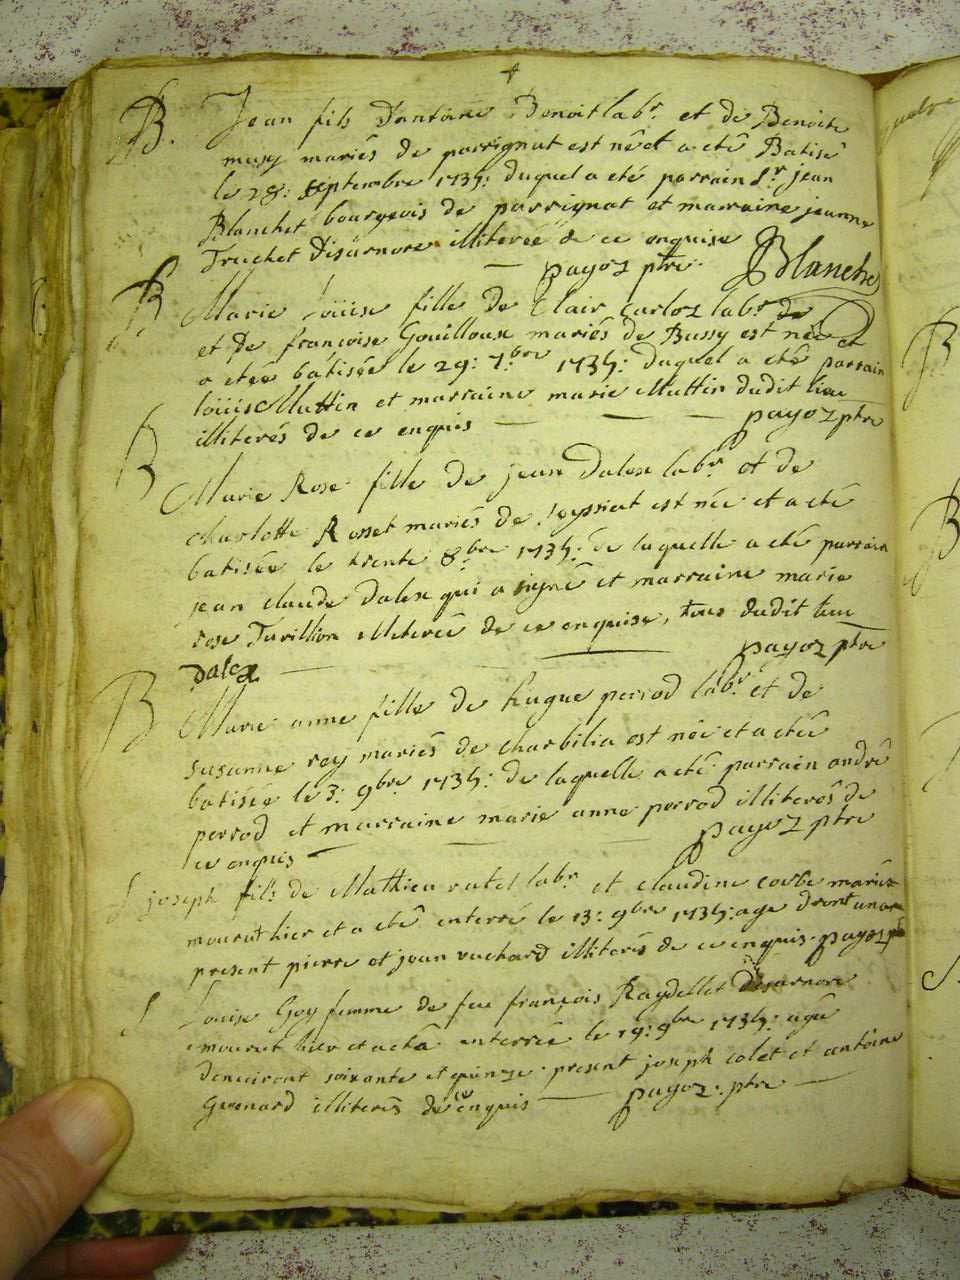 B. Jean fils D'antoine Benoit labr. et de Benoite
musy mariés de parrignat est né et a eté Batisé
le 28: septembre 1735: duquel a eté parrain Sr. jean
Blanchet bourgeois de parrignat et marraine jeanne
Truchet Disarnore illiterée de ce enquise
payoz ptre. Blanchet
B Marie loüise fille de Clair Carloz labr de
et de francoise Gouilloux mariés de Bussy est née et
a eteé bátisée le 29: 7.bre 1735: duquel a eté parrain
loüis Muttin et marraine marie Muttin dudit lieu
illiterés de ce enquis payoz ptre
B Marie Rose fille de jean Dalex labr et de
charlotte Rosset mariés de veyssiat est née et a eté
batisée le trente 8.bre 1735: de laquelle a eté parrain
jean claude Dalex qui a signé et marraine marie
rose Turillion illiterée de ce enquise, tous dudit lieu
Dalex payoz ptre
B Marie anne fille de hugue perrod labr. et de
susanne roy mariés de charbilia est née et a eté
batisée le 3: 9bre 1735: de laquelle a eté parrain andré
perrod et marraine marie anne perrod illiterés de
ce enquis payoz ptre
S joseph fils de Mathieu ratel labr. et claudine corbe mariés
mourut hier et a eté enterré le 13: 9bre 1735: age dront un an
present pierre et jean vuchard illiterés de ce enquis. payoz ptre
S Louise Goy femme de feu françois Raydellet Disarnore
mourut hier et a eté enterrée le 19: 9bre 1735: agée
denviront soixante et quinze. present joseph colet et antoine
Gvenard illiterés de ce enquis payoz. ptre